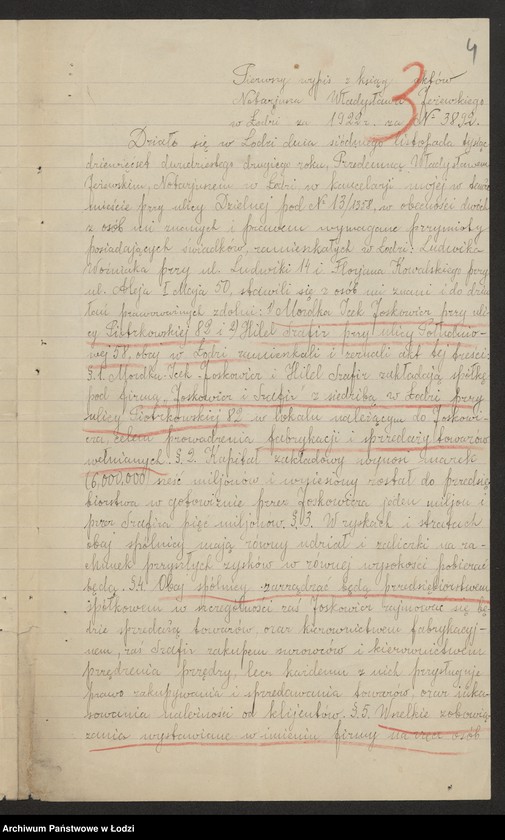 4
3
Pierwszy wypis z księgi aktów
Notarjusza Władysława Jeżewskiego
w Łodzi za 1922 r. za № 3892.
Działo się w Łodzi dnia siódmego listopada tysiąc
dziewięćset dwudziestego drugiego roku. Przedemną Władysławem
Jeżewskim, Notarjuszem w Łodzi w kancelarji mojej w temże
mieście przy ulicy Dzielnej pod № 13/1358. w obecności dwóch
z osób mi znanych i prawem wymagane przymioty
posiadających świadków, zamieszkałych w Łodzi: Ludwika
Woźniaka przy ul. Ludwiki 14 i Florjana Kowalskiego przy
ul. Aleja I Maja 50, stawili się z osób mi znani i do dzia
łań prawozawianych zdolni: 1/ Mordka Icek Joskowicz przy uli
cy Piotrkowskiej 82 i 2/ Hilel Szafir przy ulicy Południo-
wej 58. obaj w Łodzi zamieszkali i zeznali akt tej treści:
§.1. Mordka-Icek Joskowicz i Hilel Szafir zakładają spółkę
pod firmą „Joskowicz i Szafir" z siedzibą w Łodzi przy
ulicy Piotrkowskiej 82 w lokalu należącym do Joskowi-
cza celem prowadzenia fabrykacji i sprzedaży towarów
wełnianych. §.2. Kapitał zakładowy wynosi marek
(6,000,000) sześć miljonów i wniesiony został do przedsię
biorstwa w gotowiźnie przez Joskowicza jeden miljon i
przez Szafira pięć miljonów. §.3. W zyskach i stratach
obaj spólnicy mają równy udział i zaliczki na ra-
chunek przyszłych zysków w równej wysokości pobierać
będą. §.4. Obaj spólnicy zarządzać będą przedsiębiorstwem
spółkowem w szczególności zaś Joskowicz zajmować się bę-
dzie sprzedażą towarów, oraz kierownictwem fabrykacyj-
nem, zaś Szafir zakupem surowców i kierownictwem
przędzenia przędzy, lecz każdemu z nich przysługuje
prawo zakupywania i sprzedawania towarów, oraz inka-
sowania należności od klijentów. §.5. Wszelkie zobowią-
zania wystawiane w imieniu firmy na rzecz osób
Archiwum Państwowe w Łodzi